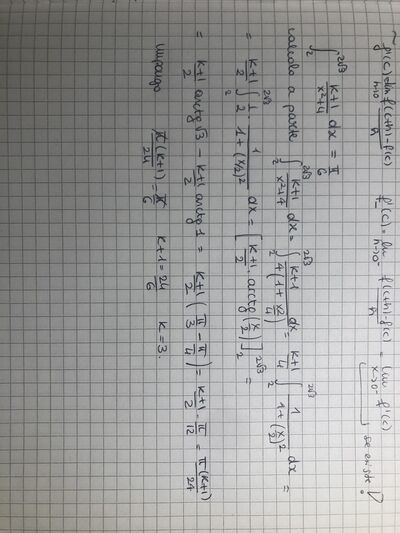 ~ f'(c) = lim h→0 f(c+h) - f(c) / h   f'_(c) = lim h→0⁻ f(c+h) - f(c) / h = lim x→0⁻ f'(c)
se existe!
∫₂^{2√3} k+1 / x²+4 dx = π/6
calcolo a parte ∫₂^{2√3} k+1 / x²+4 dx = ∫₂^{2√3} k+1 / 4(1 + x²/4) dx = k+1/4 ∫₂^{2√3} 1 / 1+(x/2)² dx =
= k+1/2 ∫₂^{2√3} 1/2 · 1 / 1+(x/2)² dx = [k+1/2 · arctg(x/2)]₂^{2√3} =
= k+1/2 arctg √3 - k+1/2 arctg 1 = k+1/2 (π/3 - π/4) = k+1/2 · π/12 = π(k+1)/24
impongo π(k+1)/24 = π/6   k+1 = 24/6   k = 3.